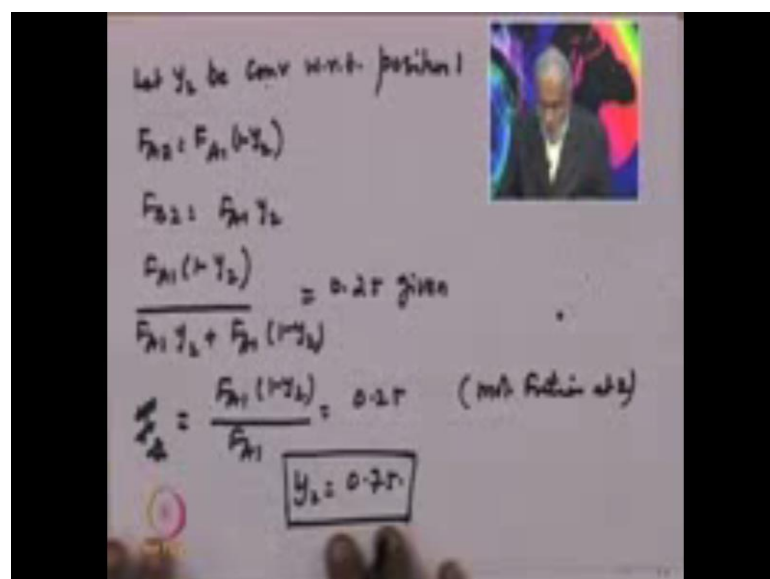 Let Y₂ be Conv w.r.t. position 1
F_A2 = F_A1 (1-Y₂)
F_B2 = F_A1 Y₂
F_A1 (1-Y₂) / F_A1 Y₂ + F_A1 (1-Y₂) = 0.25 given
= F_A1 (1-Y₂) / F_A1 = 0.25 (mole Fraction at 2)
Y₂ = 0.75.